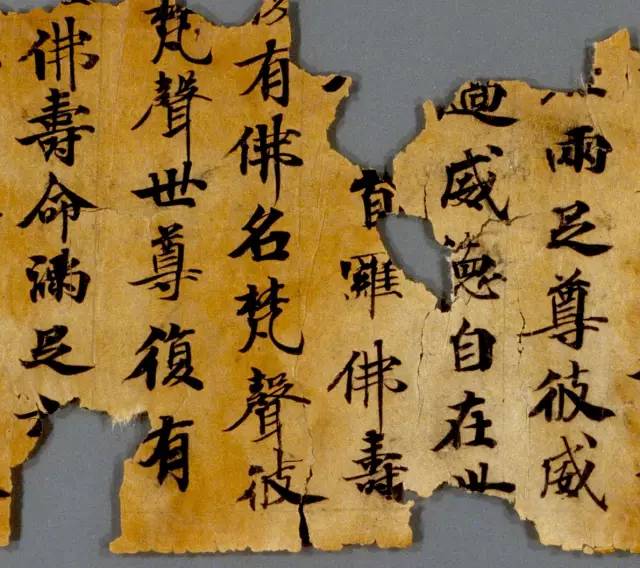 雨足尊彼威
過威德自在世
首羅佛壽
有佛名梵聲彼
梵聲世尊復有
佛壽命滿足